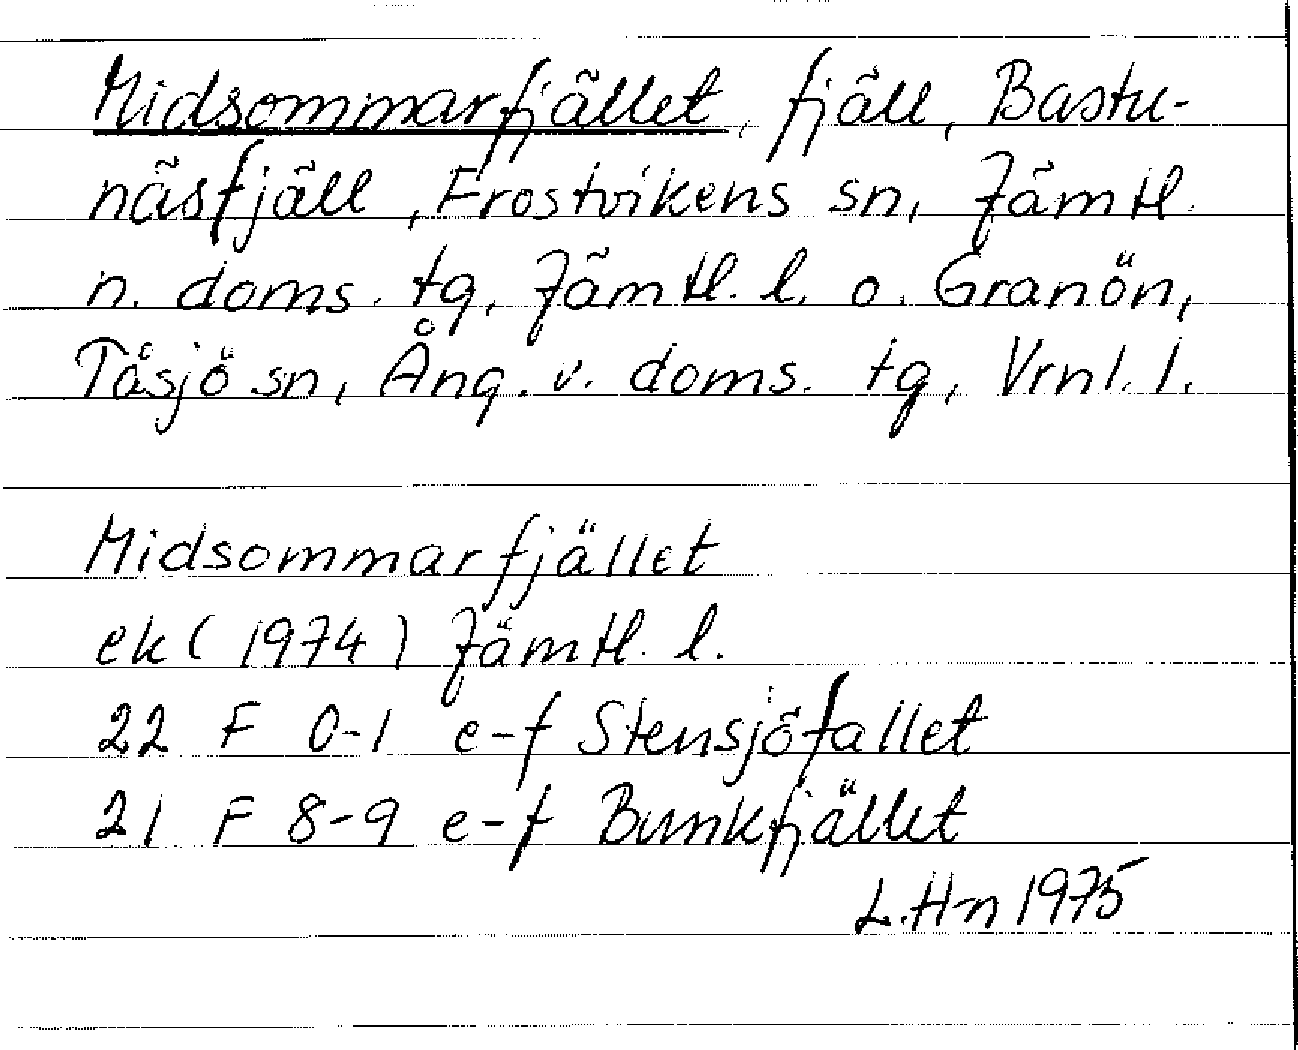 Midsommarfjället, fjäll, Bastu-
näsfjäll, Frostvikens sn, Jämtl.
n. doms. tg, Jämtl. l. o. Granön,
Tåsjö sn, Ång. v. doms. tg, Vrnl. l.
Midsommarfjället
ek (1974) Jämtl. l.
22 F 0-1 e-f Stensjöfallet
21 F 8-9 e-f Bunkfjället
L. H-n 1975